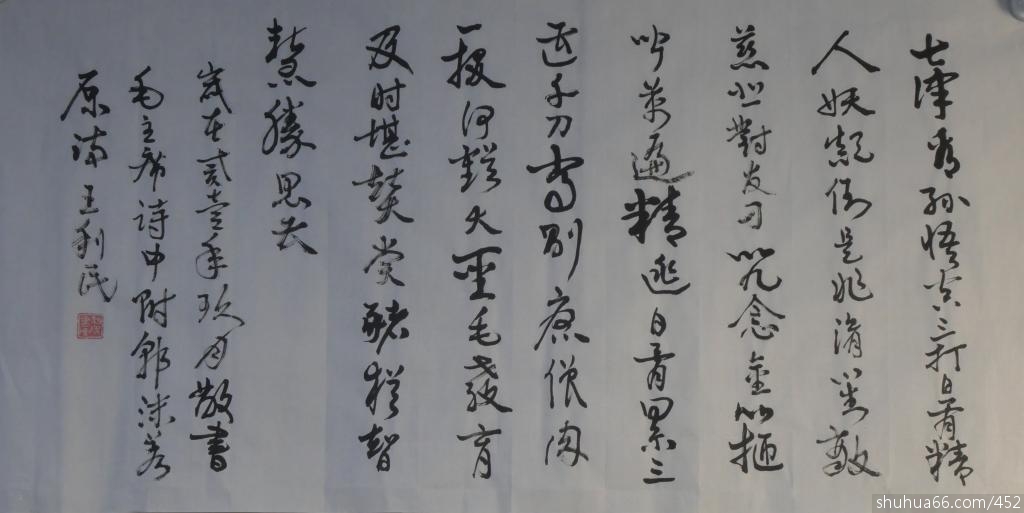 七律看孙悟空三打白骨精
人妖颠倒是非淆对敌
慈悲對友刁咒念金箍
闻万遍精逃白骨累三
遭千刀当剐唐僧肉
一拔何虧大聖毛教育
及时堪赞赏豬犹智
慧勝愚曹
岁在贰壹年玖月敬書
毛主席詩中附郭沫若
原诗王利民
shuhua66.com/452